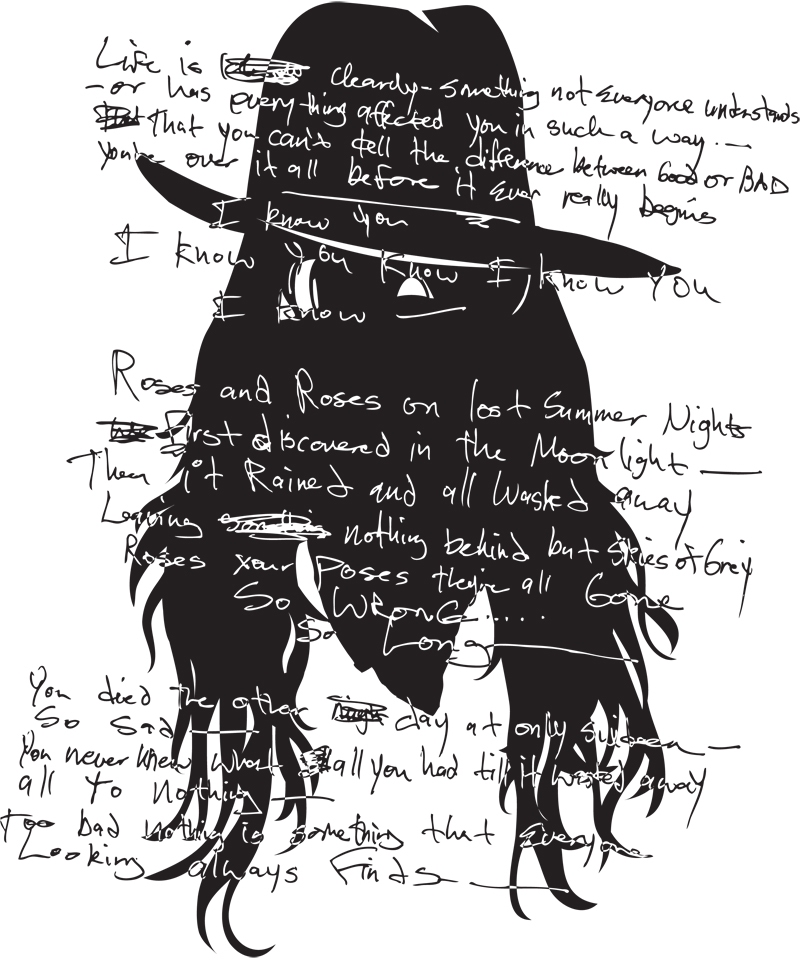 Life is clearly - something not everyone understands
- or has everything affected you in such a way. —
That you can't tell the difference between Good or BAD
you're over it all before it ever really begins
I know you
I know you know I know you
I know
Roses and Roses on lost Summer Nights
First discovered in the Moonlight —
Then it Rained and all Wasked away
Leaving nothing behind but Skies of Grey
Roses your Poses they're all Gone
So WRONG......
So Long
You died the other day at only sixteen —
So Sad —
You never knew what all you had till it wasted away
all To Nothing —
Too bad Nothing is something that Everyone
Looking always Finds —